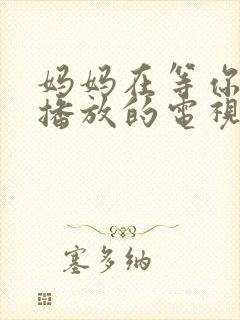 妈妈在等你
播放的電視
塞多纳